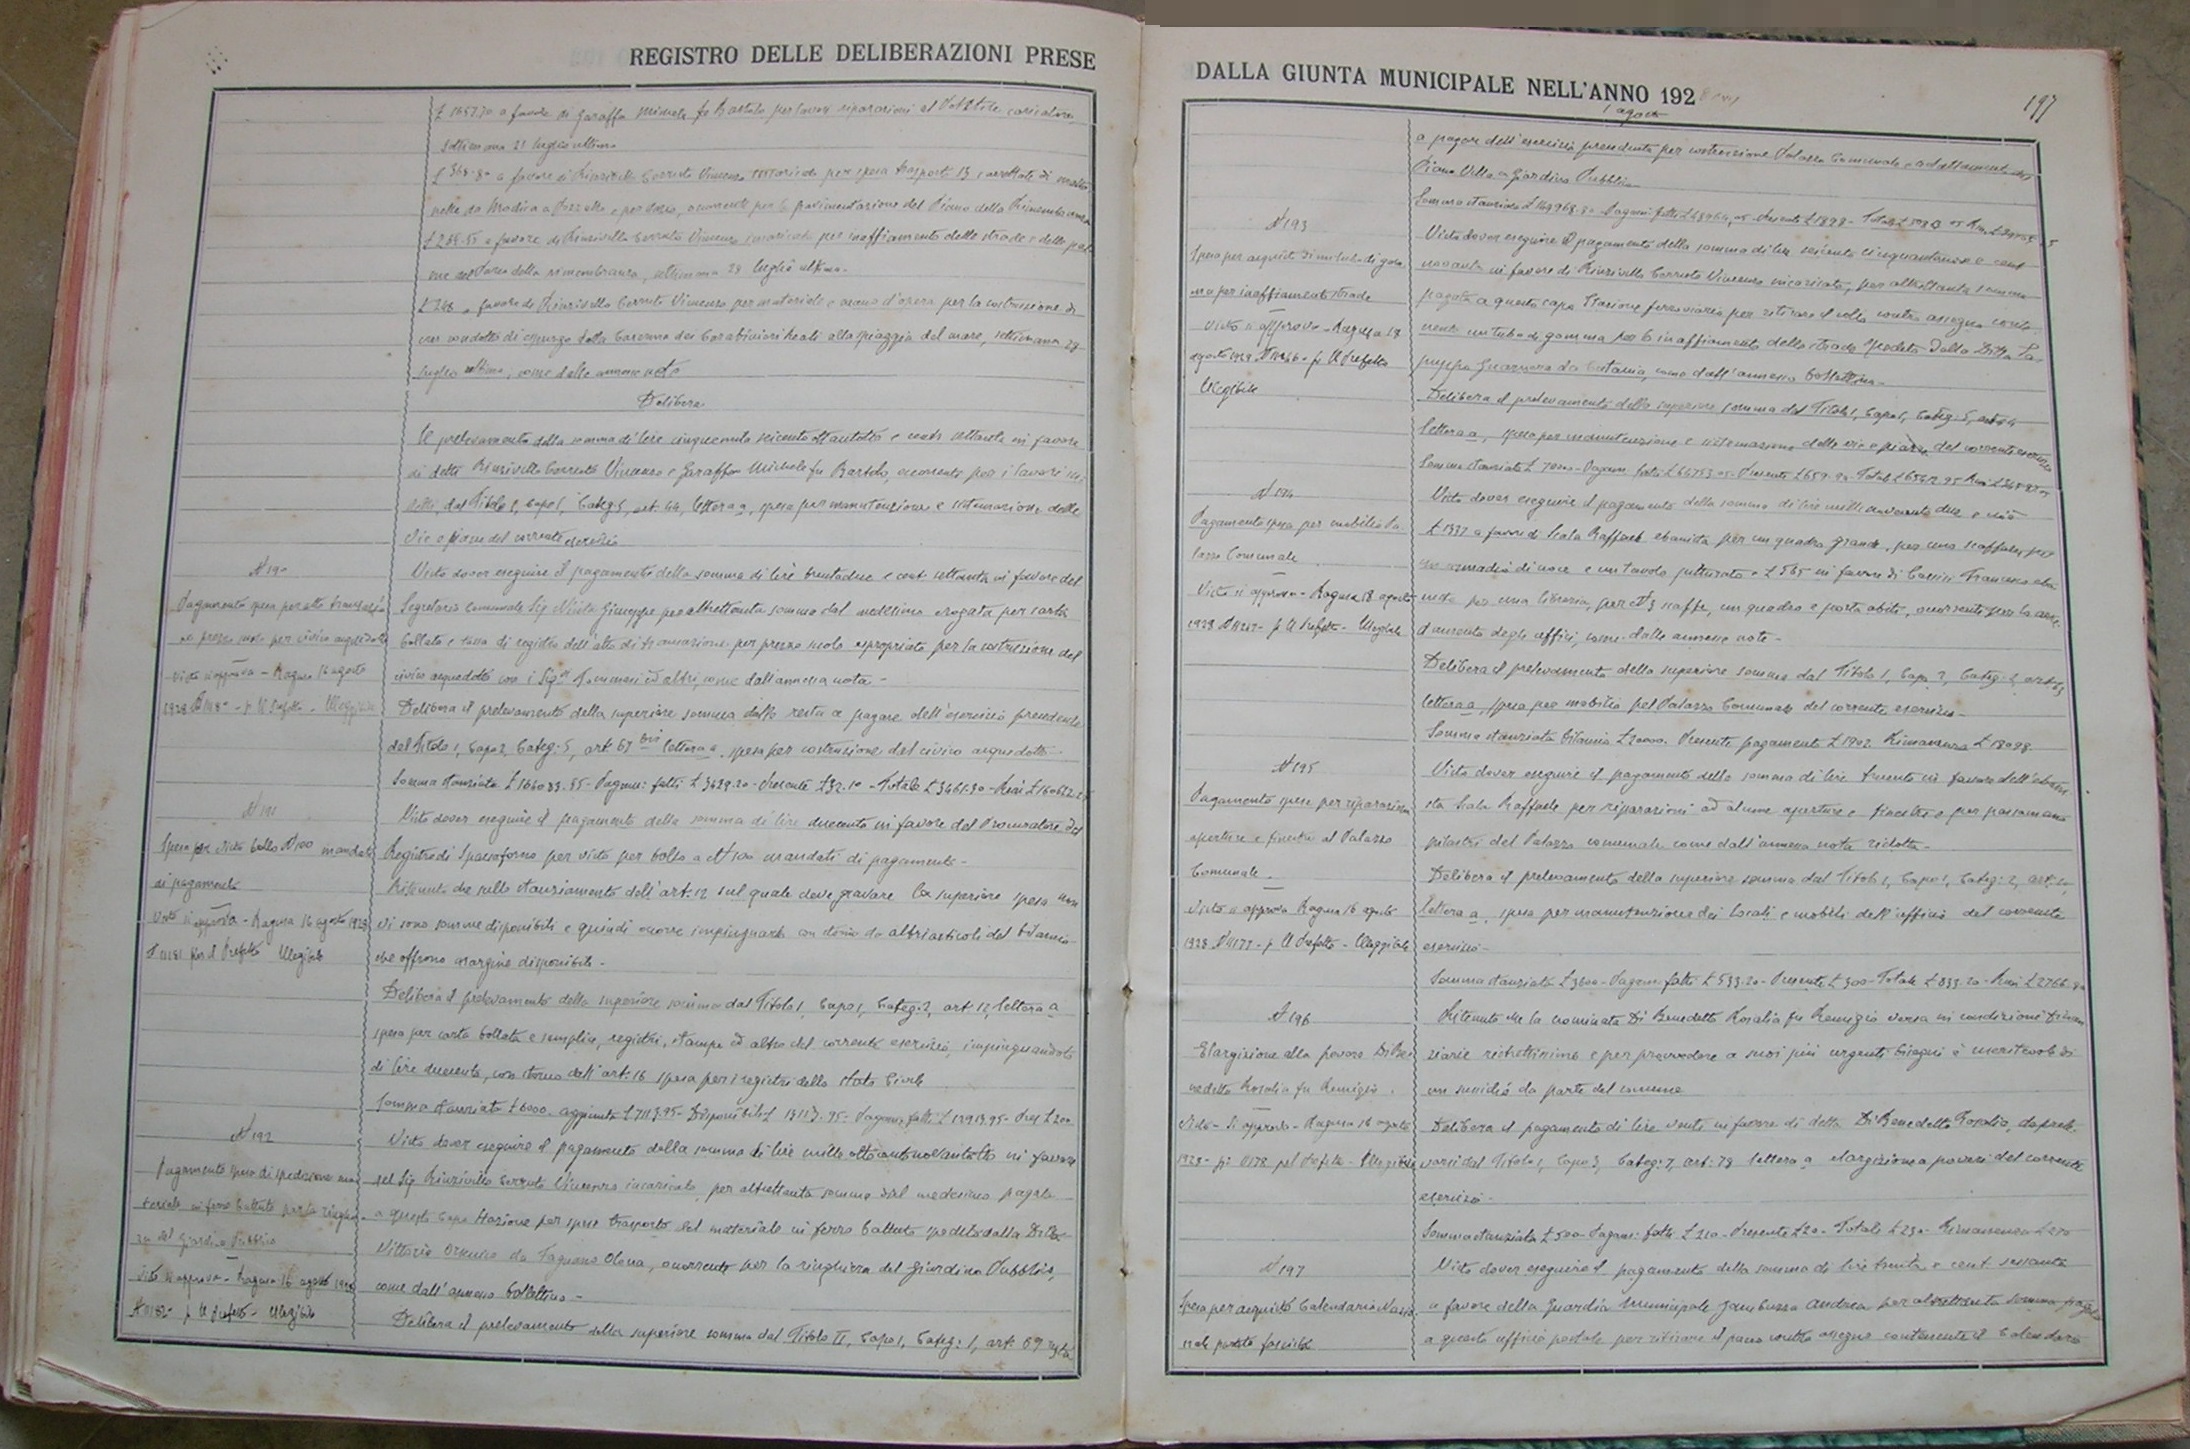 REGISTRO DELLE DELIBERAZIONI PRESE
£ 1657.70 a favore di Garaffa Michele fu Bartolo per lavori riparazioni al
settimana 29 luglio ultimo
£ 368.80 a favore di Rinzivillo Cerruto Vincenzo incaricato per spesa trasporti 13 carrettate di
nelle da Modica a Pozzallo e per dazio, occorrenti per la pavimentazione del Piano della Rimembranza
£ 289.55 a favore di Rinzivillo Cerruto Vincenzo incaricato per inaffiamento delle strade e delle
del Parco della rimembranza, settimana 29 luglio ultimo.
£ 248 a favore di Rinzivillo Cerruto Vincenzo per materiale e mano d'opera per la costruzione di
un condotto di espurgo dalla Caserma dei Carabinieri Reali alla spiaggia del mare, settimana 29
luglio ultimo, come dalle annesse note
Delibera
Il prelevamento della somma di lire cinquemila seicento ottantotto e cent. settanta in favore
di detti Rinzivillo Cerruto Vincenzo e Garaffa Michele fu Bartolo, occorrente per i lavori
detti, dal Titolo I, Capo I, Categ. 5, art. 64, lettera a, spesa per manutenzione e sistemazione delle
vie e piazze del corrente esercizio
N 190
Pagamento spesa per atto transazio
ne prezzo suolo per civico acquedotto
Visto si approva - Ragusa 16 agosto
1928 N 1180 - p. Il Prefetto - Illeggibile
Visto dover eseguire il pagamento della somma di lire trentadue e cent. settanta in favore del
Segretario Comunale Sig. Nicola Giuseppe per altrettanta somma dal medesimo erogata per carta
bollata e tassa di registro dell'atto di transazione per prezzo suolo espropriato per la costruzione del
civico acquedotto con i Sigri Tommasi ed altri, come dall'annessa nota -
Delibera il prelevamento della superiore somma dalla resta a pagare dell'esercizio precedente
del Titolo I, Capo 2, Categ. 5, art. 67 bis lettera a, spesa per costruzione del civico acquedotto -
Somma stanziata £ 164083.55 - Pagam. fatti £ 3429.20 - Presente £ 32.10 - Totale £ 3461.30 - Rim. £ 160622.25
N 191
Spesa per visto bollo N 100 mandati
di pagamento
Visto si approva - Ragusa 16 agosto 1928
N 11181 per il Prefetto Illegibile
Visto dover eseguire il pagamento della somma di lire duecento in favore del Procuratore del
Registro di Spaccaforno per visto per bollo a N 100 mandati di pagamento -
Ritenuto che sullo stanziamento dell'art. 12 sul quale deve gravare la superiore spesa non
vi sono somme disponibili e quindi occorre impinguarlo con storno da altri articoli del bilancio
che offrono margine disponibile -
Delibera il prelevamento della superiore somma dal Titolo I, Capo I, Categ. 2, art. 12, lettera a
spesa per carta bollata e semplice, registri, stampe ed altro del corrente esercizio, impinguandolo
di lire duecento, con storno dall'art. 16 spesa per i registri dello Stato Civile
Somma stanziata £ 6000. aggiunta £ 7113.95 - Disponibile £ 13113.95 - Pagam. fatti £ 12913.95 - Pres. £ 200
N 192
Pagamento spesa di spedizione ma
teriale in ferro battuto per la ringhie
ra del Giardino Pubblico
Visto si approva - Ragusa 16 agosto 1928
N 11182 - p. Il Prefetto - Illegibile
Visto dover eseguire il pagamento della somma di lire mille ottocentonovantotto in favore
del Sig. Rinzivillo Cerruto Vincenzo incaricato, per altrettanta somma dal medesimo pagata
a questo Capo Stazione per spese trasporto del materiale in ferro battuto spedito dalla Ditta
Vittorio Orsenico da Fagnano Olona, occorrente per la ringhiera del Giardino Pubblico,
come dall'annesso bollettino -
Delibera il prelevamento della superiore somma dal Titolo II, Capo I, Categ. I, art. 69
DALLA GIUNTA MUNICIPALE NELL'ANNO 192
1 agosto
197
a pagare dell'esercizio precedente per costruzione Palazzo Comunale e adattamento del
Piano Villa a Giardino Pubblico
N 193
Spesa per acquisto di un tubo di gom
ma per inaffiamento strade
Visto si approva - Ragusa 18
agosto 1928 - p. Il Prefetto
Illegibile
Visto dover eseguire il pagamento della somma di lire seicento cinquantanove e cent.
novanta in favore di Rinzivillo Cerruto Vincenzo incaricato, per altrettanta somma
pagata a questo capo Stazione ferroviaria per ritirare il collo contro assegno conte
nente un tubo di gomma per lo inaffiamento delle strade spedito dalla Ditta
Guarnera da Catania, come dall'annesso bollettino -
Delibera il prelevamento della superiore somma dal Titolo I, Capo I, Categ. 5, art. 64
lettera a, spesa per manutenzione e sistemazione delle vie e piazze del corrente esercizio
N 194
Pagamento spesa per mobilio Pa
lazzo Comunale
Visto si approva - Ragusa 18 agosto
1928 - p. Il Prefetto - Illegibile
Visto dover eseguire il pagamento della somma di lire mille novecento due e cioè
£ 1337 a favore di Scala Raffaele ebanista per un quadro grande, per uno scaffale, per
un armadio di noce e un tavolo pitturato e £ 565 in favore di Francesco eba
nista per una libreria, per N 3 scaffe, un quadro e porta abiti, occorrenti per lo arre
damento degli uffici, come dalle annesse note -
Delibera il prelevamento della superiore somma dal Titolo I, Capo 2, Categ. 2, art.
lettera a, spesa per mobilio pel Palazzo Comunale del corrente esercizio -
Somma stanziata bilancio £ 20000. Presente pagamento £ 1902. Rimanenza £ 18098
N 195
Pagamento spese per riparazioni
aperture e finestre al Palazzo
Comunale -
Visto si approva Ragusa 16 agosto
1928 N 11177 - p. Il Prefetto - Illeggibile
Visto dover eseguire il pagamento della somma di lire trecento in favore dell'ebani
sta Scala Raffaele per riparazioni ad alcune aperture e finestre e per passamano
pilastri del Palazzo comunale come dall'annessa nota ridotta -
Delibera il prelevamento della superiore somma dal Titolo I, Capo I, Categ. 2, art. 20,
lettera a, spesa per manutenzione dei locali e mobili dell'ufficio del corrente
esercizio -
Somma stanziata £ 3600 - Pagam. fatti £ 533.20 - Presente £ 300 - Totale £ 833.20 - Rim. £ 2766.80
N 196
Elargizione alla povera Di Be
nedetto Rosalia fu Remigio.
Visto - Si approva - Ragusa 16 agosto
1928 - N 11178 pel Prefetto - Illegibile
Ritenuto che la nominata Di Benedetto Rosalia fu Remigio versa in condizioni finan
ziarie ristrettissime e per provvedere a suoi più urgenti bisogni è meritevole di
un sussidio da parte del comune
Delibera il pagamento di lire venti in favore di detta Di Benedetto Rosalia, da prele
varsi dal Titolo I, Capo 3, Categ. 7, art. 78 lettera a elargizione a poveri del corrente
esercizio -
Somma stanziata £ 500 - Pagam. fatti £ 210 - Presente £ 20 - Totale £ 230 - Rimanenza £ 270
N 197
Spesa per acquisto Calendario Nazio
nale partito fascista
Visto dover eseguire il pagamento della somma di lire trenta e cent. sessanta
a favore della Guardia Municipale Giambarresa Andrea per altrettanta somma pagata
a questo ufficio postale per ritirare il pacco contro assegno contenente il Calendario